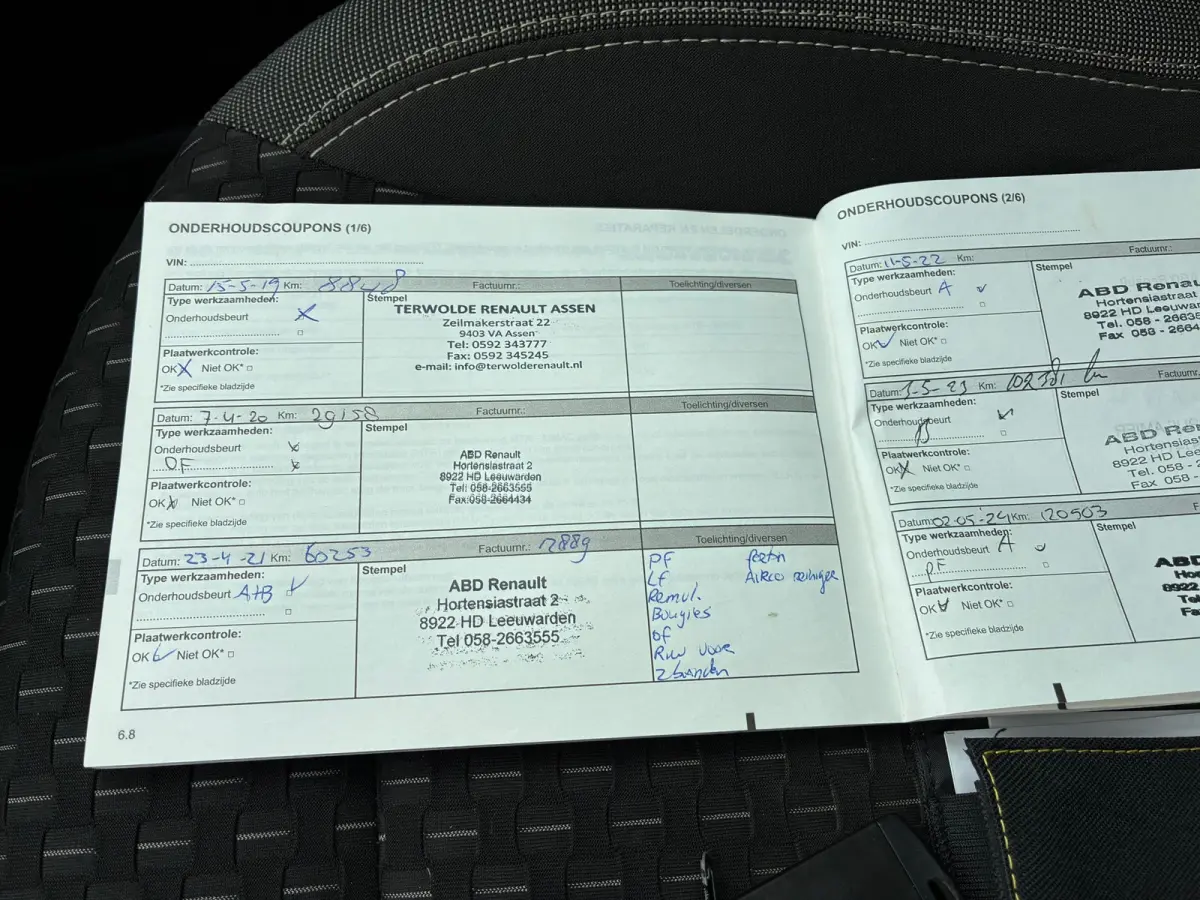 ONDERHOUDSCOUPONS (1/6)
VIN:
Datum: 15-5-19 Km: 8848 Factuurnr.: Toelichting/diversen
Type werkzaamheden:
Onderhoudsbeurt
Plaatwerkcontrole:
OK Niet OK*
*Zie specifieke bladzijde
Stempel
TERWOLDE RENAULT ASSEN
Zeilmakerstraat 22
9403 VA Assen
Tel: 0592 343777
Fax: 0592 345245
e-mail: info@terwolderenault.nl
Datum: 7-4-20 Km: 29158 Factuurnr.: Toelichting/diversen
Type werkzaamheden:
Onderhoudsbeurt
OF
Plaatwerkcontrole:
OK Niet OK*
*Zie specifieke bladzijde
Stempel
ABD Renault
Hortensiastraat 2
8922 HD Leeuwarden
Tel: 058-2663555
Fax:058-2664434
Datum: 23-4-21 Km: 60253 Factuurnr.: 12889 Toelichting/diversen
Type werkzaamheden:
Onderhoudsbeurt A+B
Plaatwerkcontrole:
OK Niet OK*
*Zie specifieke bladzijde
Stempel
ABD Renault
Hortensiastraat 2
8922 HD Leeuwarden
Tel 058-2663555
PF
LF Airco reiniger
Remvl.
Bougies
OF
Ruw voor
2 banden
6.8
ONDERHOUDSCOUPONS (2/6)
VIN:
Datum: 11-5-22 Km: Factuurnr.:
Type werkzaamheden:
Onderhoudsbeurt A
Plaatwerkcontrole:
OK Niet OK*
*Zie specifieke bladzijde
Stempel
ABD Renau
Hortensiastraat
8922 HD Leeuwar
Tel. 058 - 26635
Fax 058 - 2664
Datum: 1-5-23 Km: 102381 km Factuurnr.
Type werkzaamheden:
Onderhoudsbeurt
B
Plaatwerkcontrole:
OK Niet OK*
*Zie specifieke bladzijde
Stempel
ABD Ren
Hortensiastra
8922 HD Leeuw
Tel. 058 - 26
Fax 058 -
Datum: 02-05-24 Km: 120503 F
Type werkzaamheden:
Onderhoudsbeurt A
OF
Plaatwerkcontrole:
OK Niet OK*
*Zie specifieke bladzijde
Stempel
ABD
Hort
8922
Tel
Fa